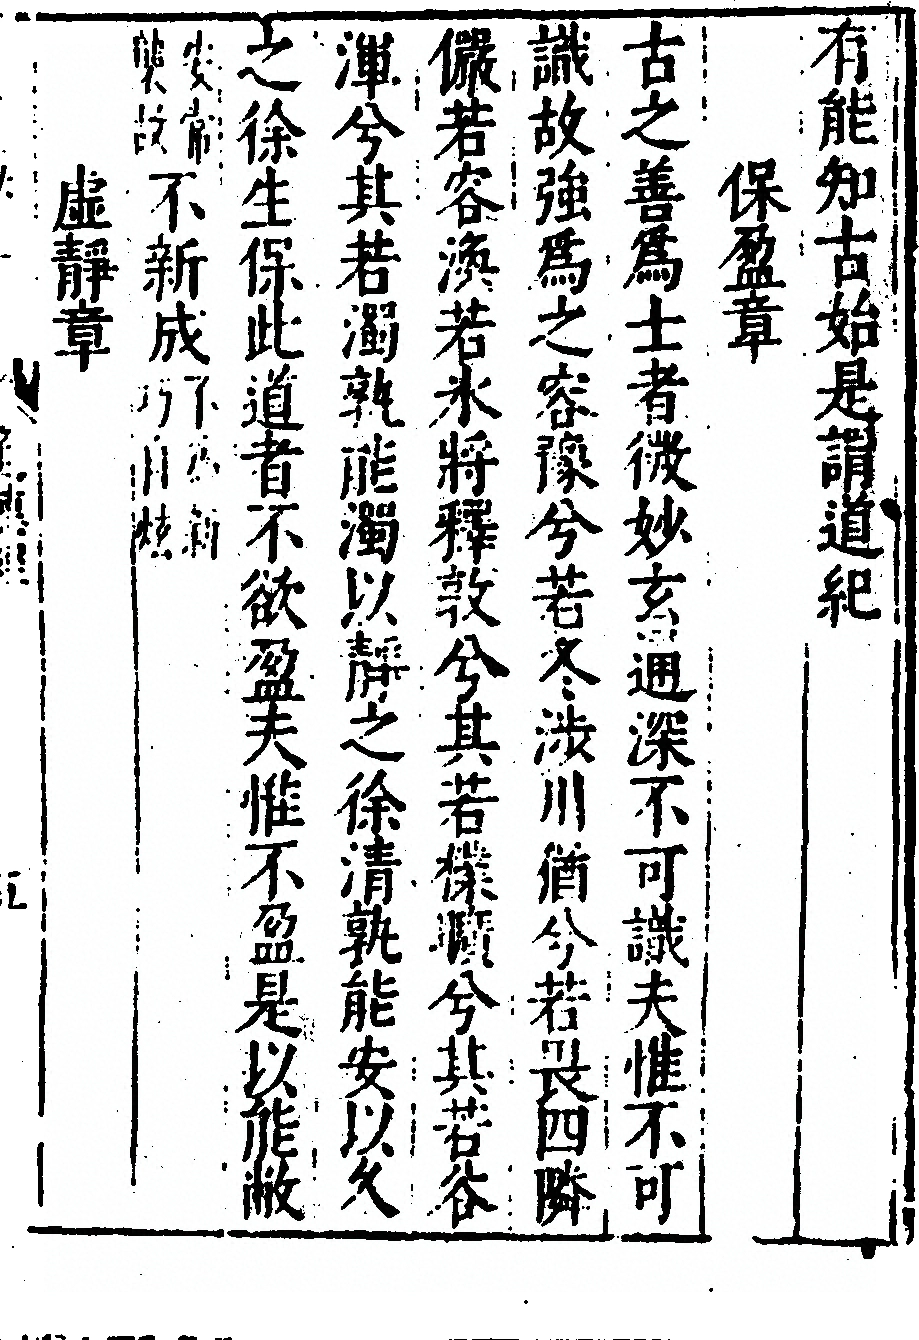 有能知古始是謂道紀
保盈章
古之善爲士者微妙玄通深不可識夫惟不可
識故強爲之容豫兮若冬涉川猶兮若畏四隣
儼若容渙若氷將釋敦兮其若樸曠兮其若谷
渾兮其若濁孰能濁以靜之徐清孰能安以久
之徐生保此道者不欲盈夫惟不盈是以能敝
安常襲故不新成不爲新巧自炫
虛靜章